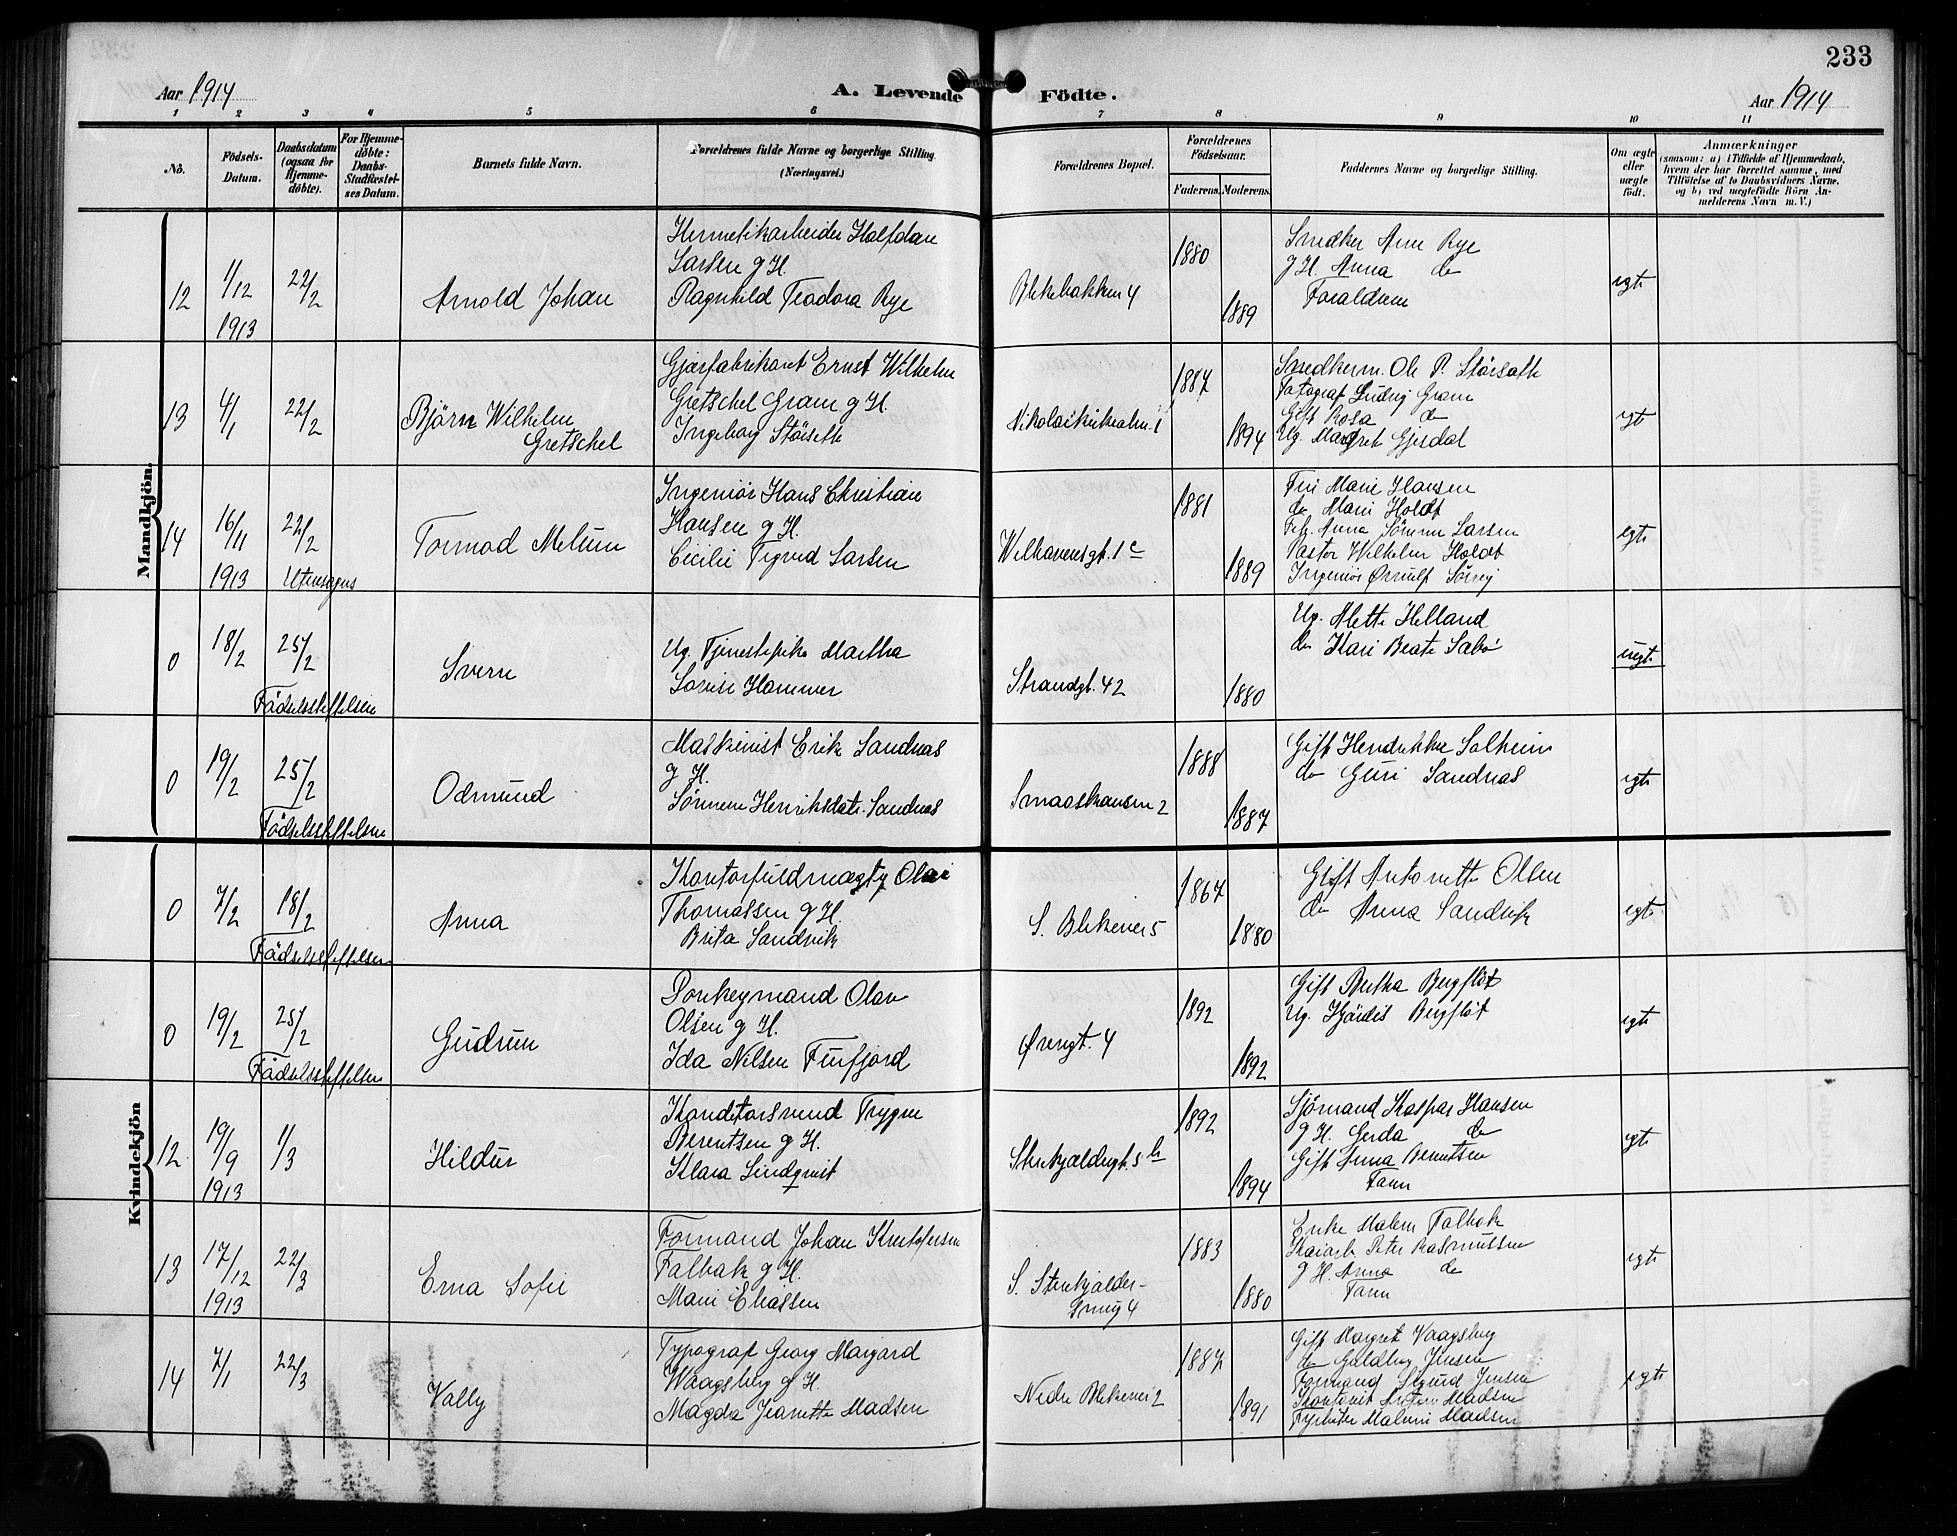 233
Aar 1914
A. Levende Födte.
Aar 1914
1 2 3 4 5 6 7 8 9 10 11
No.
Födsels-
Datum.
Daabsdatum
(ogsaa for
Hjemme-
döbte).
For Hjemme-
döbte:
Daabs-
Stadfæstel-
ses Datum.
Barnets fulde Navn.
Forældrenes fulde Navne og borgerlige Stilling.
(Næringsvei.)
Forældrenes Bopæl.
Forældrenes
Födselsaar.
Faderens. Moderens.
Faddernes Navne og borgerlige Stilling.
Om ægte
eller
uægte
født.
Anmærkninger
(saasom: a) i Tilfælde af Hjemmedaab,
hvem der har forrettet samme, med
Tilföielse af to Daabsvidners Navne,
og b) ved uægtefödte Börn An-
melderens Navn m. V.)
Mandkjön.
12
1/12
1913
22/2
Arnold Johan
Hermetikarbeider Halfdan
Larsen g H.
Ragnhild Teodora Rye
Blekebakken 4
1880
1889
Snedker Arne Rye
g H. Anna do
Forældrene
egte
13
4/1
22/2
Björn Wilhelm
Gretschel
Gjærfabrikant Ernst Wilhelm
Gretschel Gram g H.
Ingeborg Störseth
Nikolaikirkealm. 1
1887
1894
Snedkerm. Ole P. Störseth
Fotograf Ludvig Gram
Gift Rosa do
Ug. Margret Gjesdal
egt
14
16/11
1913
22/2
Utensogns
Tormod Melum
Ingeniör Hans Christian
Hansen g H.
Cecilie Larsen
Welhavensgt. 1 c
1881
1889
Fru Marie Hansen
do Marie Holdt
Anna Larsen
Pastor Wilhelm Holdt
Ingeniör Ørnulf
egte
0
18/2
25/2
Födselsstiftelsen
Svern
Ug. Tjenestepike Martha
Lovise Hammer
Strandgt. 42
1880
Ug. Mette Helland
do Kari Beate Sæbö
uegt.
0
19/2
25/2
Födselsstiftelsen
Odmund
Maskinist Erik Sandnas
g H.
Henriksdatr. Sandnas
Smaaskansen 2
1888
1887
Gift Hendrikke Solheim
do Guri Sandnas
egte
Kvindekjön
0
7/2
18/2
Födselsstiftelsen
Anna
Kontorfuldmægtig Olai
Thomassen g H.
Brita Sandvik
S. Blekevei 5
1867
1880
Gift Antonette Olsen
do Anna Sandvik
egte
0
19/2
25/2
Födselsstiftelsen
Gudrun
Donkeymand Olav
Olsen g H.
Ida Nilsen Finfjord
Øvregt. 4
1892
1892
Gift Bertha Bergflöt
Ug. Hjördis Bergflöt
egte
12
19/9
1913
1/3
Hildur
Konditorsvend Trygve
Berentsen g H.
Klara Lindqvist
Stenkjældergt. 5 b
1892
1894
Sjömand Kaspar Hansen
g H. Gerda do
Gift Anna Berentsen
Faren
egte
13
17/12
1913
22/3
Erna Sofie
Formand Johan Kristofersen
Falbak g H.
Marie Eliassen
S. Stenkjælder-
smug 4
1883
1880
Enke Malene Falbak
Peter Rasmussen
g H. Anna do
Faren
egte
14
7/1
22/3
Vally
Typograf Georg Margard
Waagsberg g H.
Magda Jeanette Madsen
Nedre Blekevei 2
1887
1891
Gift Margret Waagsberg
do Goldborg Jensen
Formand Sigurd Jensen
Kontorist Anton Madsen
Malene Madsen
egte